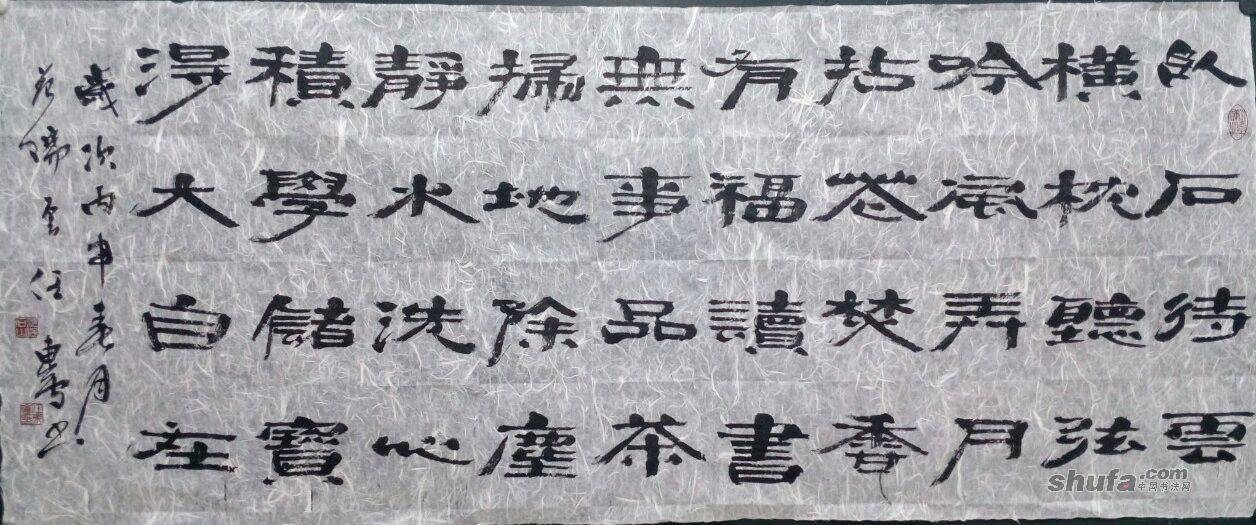 臥石待雲
橫枕聽弦
吟風弄月
拈花焚香
有福讀書
無事品茶
掃地除塵
靜水洗心
積學儲寶
得大自在
歲次丙申春月
任書
shufa.com
中国书法网